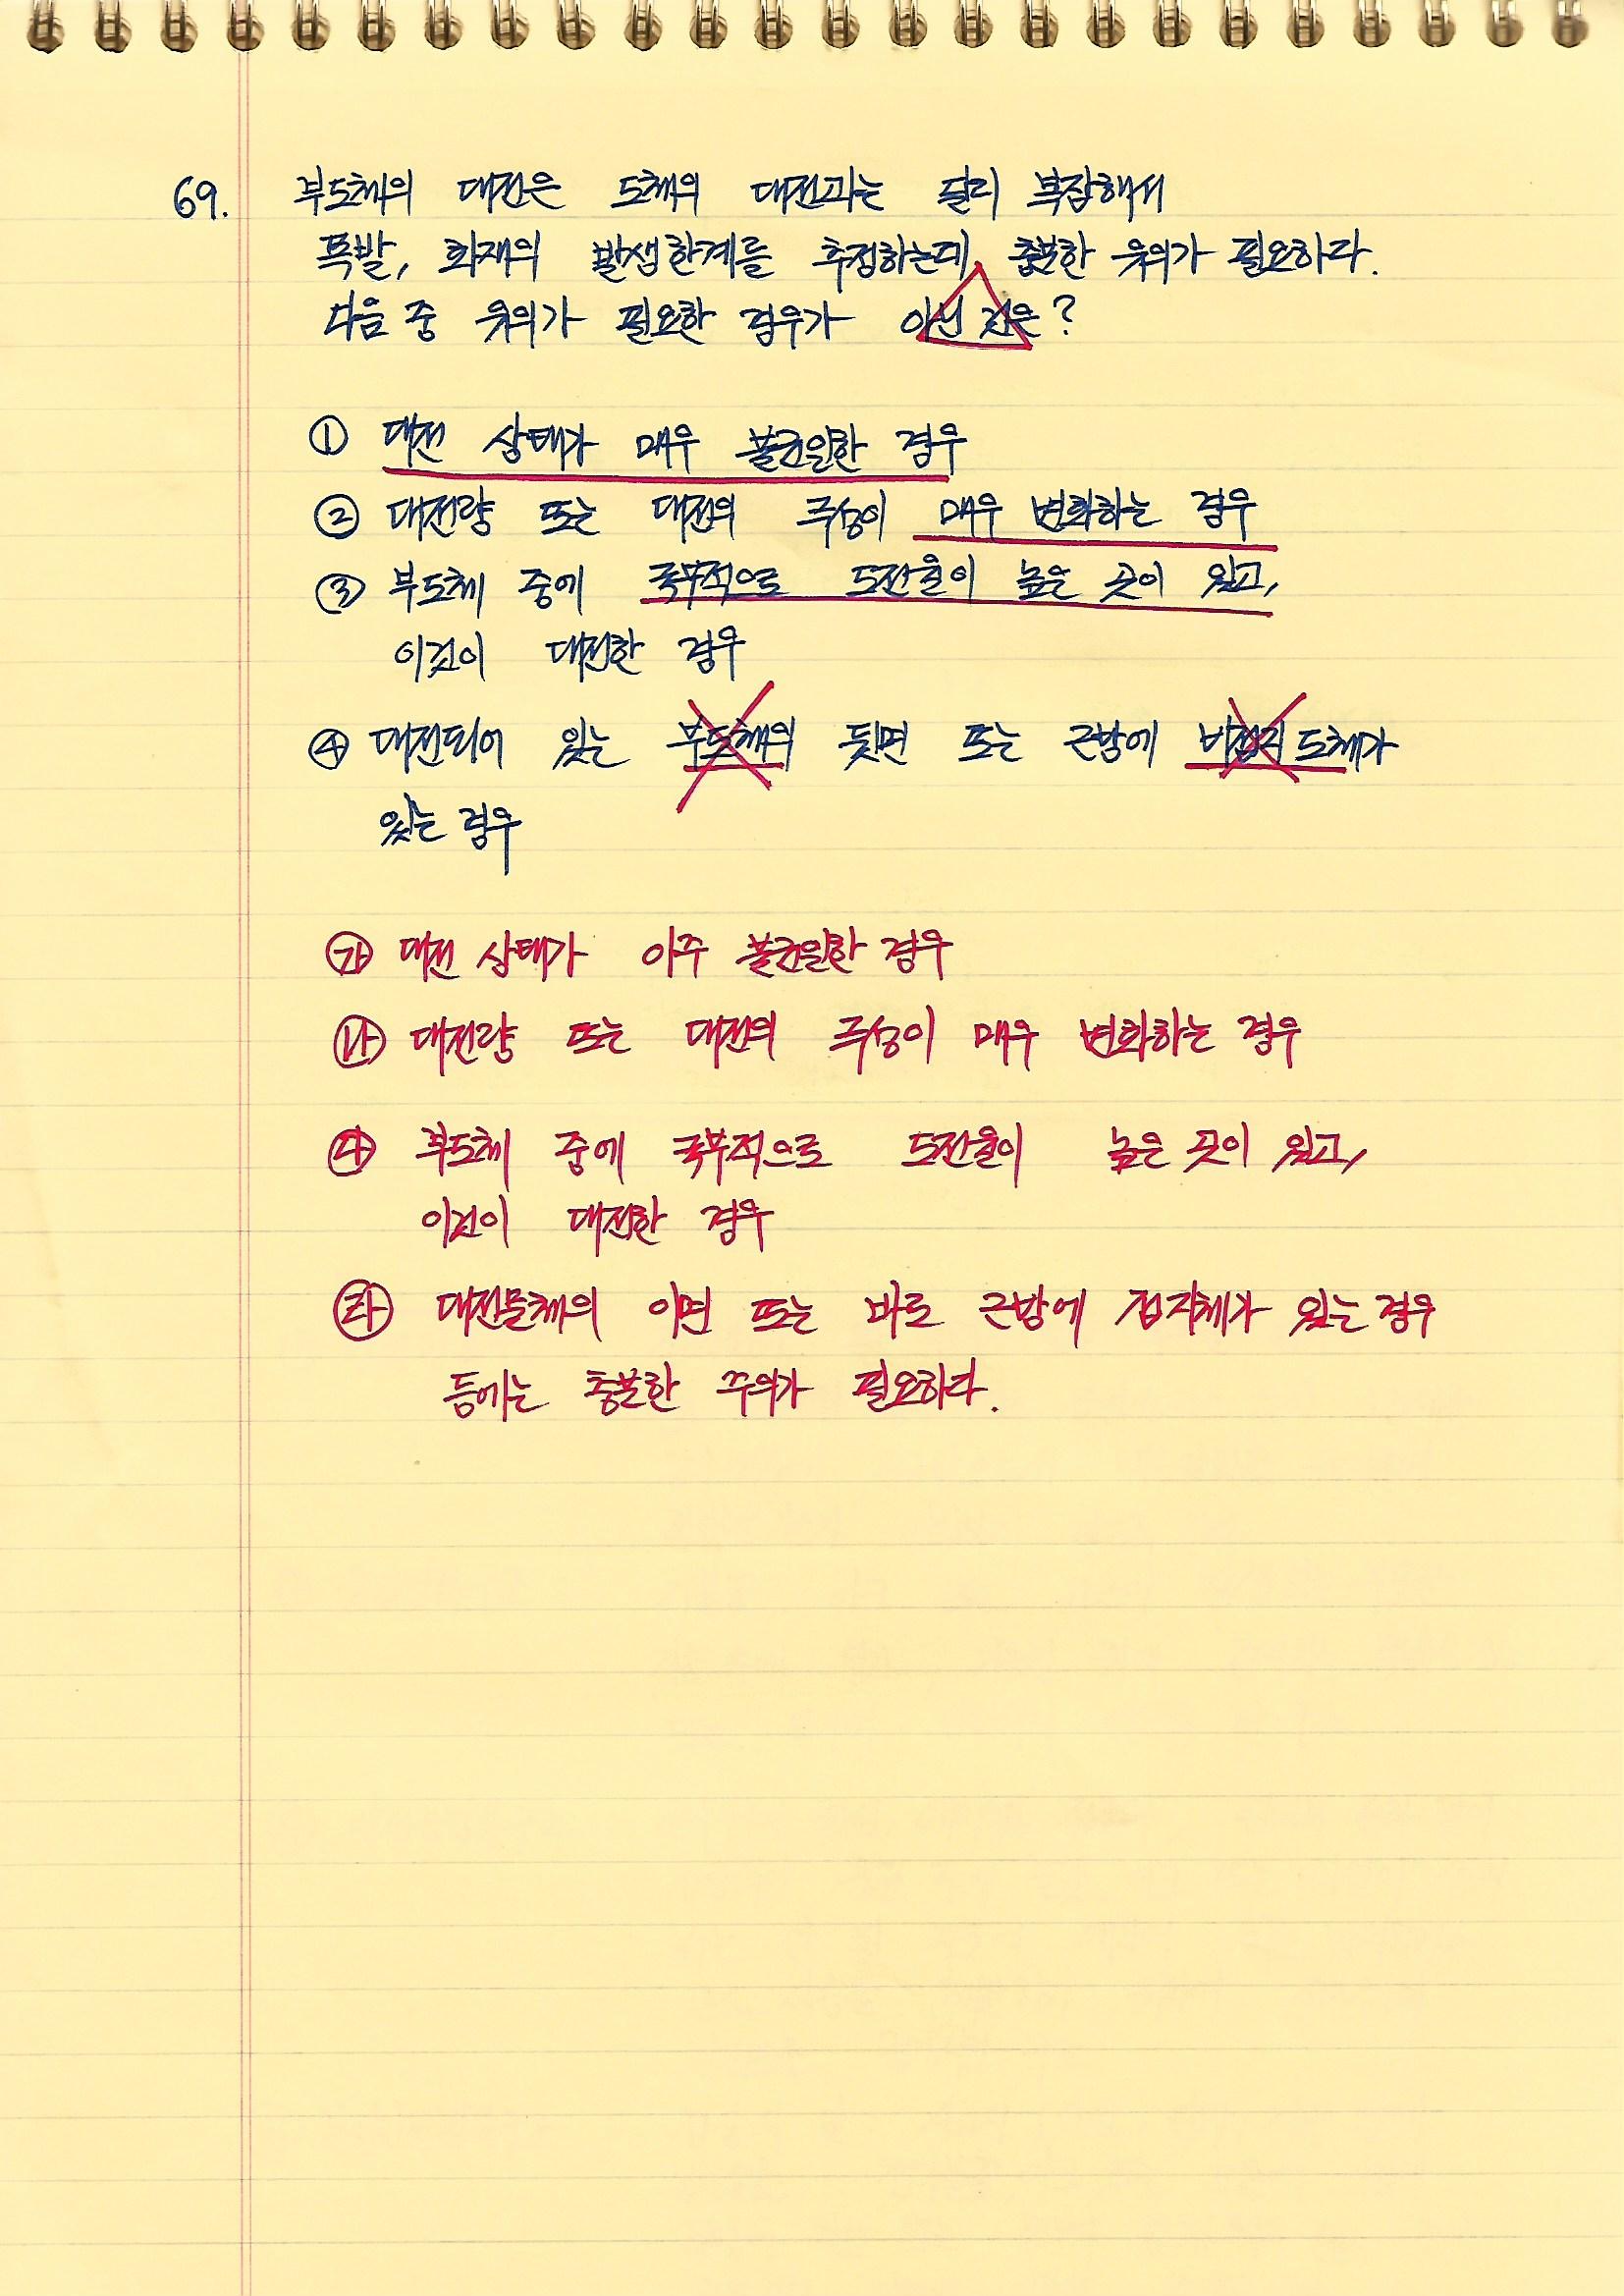 69. 부도체의 대전은 도체의 대전과는 달리 복잡해서
폭발, 화재의 발생한계를 추정하는데 충분한 유의가 필요하다.
다음 중 유의가 필요한 경우가 아닌 것은?
① 대전 상태가 매우 불균일한 경우
② 대전량 또는 대전의 극성이 매우 변화하는 경우
③ 부도체 중에 국부적으로 도전율이 높은 곳이 있고,
이것이 대전한 경우
④ 대전되어 있는 부도체의 뒷면 또는 근방에 비접지 도체가
있는 경우
㉮ 대전 상태가 아주 불균일한 경우
㉯ 대전량 또는 대전의 극성이 매우 변화하는 경우
㉰ 부도체 중에 국부적으로 도전율이 높은 곳이 있고,
이것이 대전한 경우
㉱ 대전물체의 이면 또는 바로 근방에 접지체가 있는 경우
등에는 충분한 주의가 필요하다.